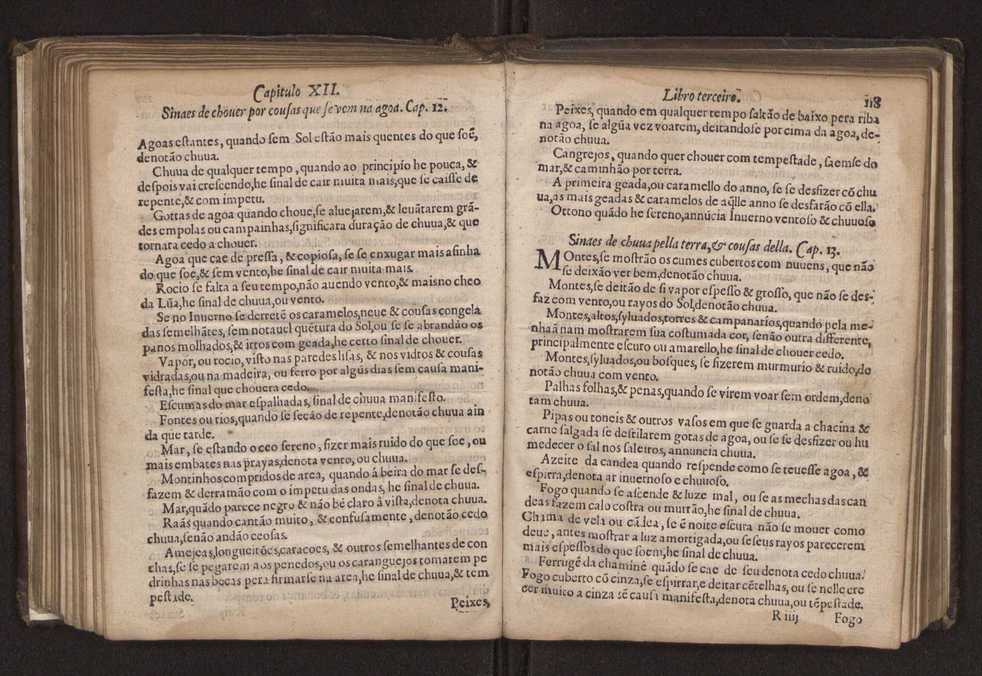 Capitulo XII.
Sinaes de chouer por cousas que se vem na agoa. Cap. 12.
Agoas estantes, quando sem Sol estão mais quentes do que soẽ,
denotão chuua.
Chuua de qualquer tempo, quando ao principio he pouca, &
despois vai crescendo, he sinal de cair muita mais, que se caisse de
repente, & com impetu.
Gottas de agoa quando choue, se aluejarem, & leuãtarem grã-
des empolas ou campainhas, significara duração de chuua, & que
tornara cedo a chouer.
Agoa que cae de pressa, & copiosa, se se enxugar mais asinha
do que soe, & sem vento, he sinal de cair muita mais.
Rocio se falta a seu tempo, não auendo vento, & mais no cheo
da Lũa, he sinal de chuua, ou vento.
Se no Inuerno se derretẽ os caramelos, neue & cousas congela
das semelhãtes, sem notauel quẽtura do Sol, ou se se abrandão os
panos molhados, & irtos com geada, he certo sinal de chouer.
Vapor, ou rocio, visto nas paredes lisas, & nos vidros & cousas
vidradas, ou na madeira, ou ferro por algũs dias sem causa mani-
festa, he sinal que chouera cedo.
Escumas do mar espalhadas, sinal de chuua manifesto.
Fontes ou rios, quando se seção de repente, denotão chuua ain
da que tarde.
Mar, se estando o ceo sereno, fizer mais ruido do que soe, ou
mais embates nas prayas, denota vento, ou chuua.
Montinhos compridos de area, quando á beira do mar se des-
fazem & derramão com o impetu das ondas, he sinal de chuua.
Mar, quãdo parece negro & não bẽ claro à vista, denota chuua.
Raãs quando cantão muito, & confusamente, denotão cedo
chuua, senão andão ceosas.
Amejeas, longueirões, caracoes, & outros semelhantes de con
chas, se se pegarem aos penedos, ou os caranguejos tomarem pe
drinhas nas bocas pera firmarse na area, he sinal de chuua, & tem
pestade.
Peixes,
Libro terceiro. 118
Peixes, quando em qualquer tempo saltão de baixo pera riba
na agoa, se algũa vez voarem, deitandose por cima da agoa, de-
notão chuua.
Cangrejos, quando quer chouer com tempestade, saemse do
mar, & caminhão por terra.
A primeira geada, ou caramello do anno, se se desfizer cõ chu
ua, as mais geadas & caramelos de aq̃lle anno se desfarão cõ ella.
Ottono quãdo he sereno, annũcia Inuerno ventoso & chuuoso
Sinaes de chuua pella terra, & cousas della. Cap. 13.
MOntes, se mostrão os cumes cubertos com nuuens, que não
se deixão ver bem, denotão chuua.
Montes, se deitão de si vapor espesso & grosso, que não se des-
faz com vento, ou rayos do Sol, denotão chuua.
Montes, altos, syluados, torres & campanarios, quando pela me-
nhaã nam mostrarem sua costumada cor, senão outra differente,
principalmente escuro ou amarello, he sinal de chouer cedo.
Montes, syluados, ou bosques, se fizerem murmurio & ruido, de
notão chuua com vento.
Palhas folhas, & penas, quando se virem voar sem ordem, deno
tam chuua.
Pipas ou toneis & outros vasos em que se guarda a chacina &
carne salgada se destilarem gotas de agoa, ou se se desfizer ou hu
medecer o sal nos saleiros, annuncia chuua.
Azeite da candea quando respende como se teuesse agoa, &
espirra, denota ar inuernoso e chuuoso.
Fogo quando se ascende & luze mal, ou se as mechas das can
deas fazem calo costra ou murrão, he sinal de chuua.
Chama de vela ou cãdea, se ẽ noite escura não se mouer como
deue, antes mostrar a luz amortigada, ou se seus rayos parecerem
mais espessos do que soem, he sinal de chuua.
Ferrugẽ da chaminé quãdo se cae de seu denota cedo chuua.
Fogo cuberto cõ cinza, se espirrar, e deitar cẽtelhas, ou se nelle cre
cer muito a cinza sẽ causa manifesta, denota chuua, ou tẽpestade.
R iiij Fogo